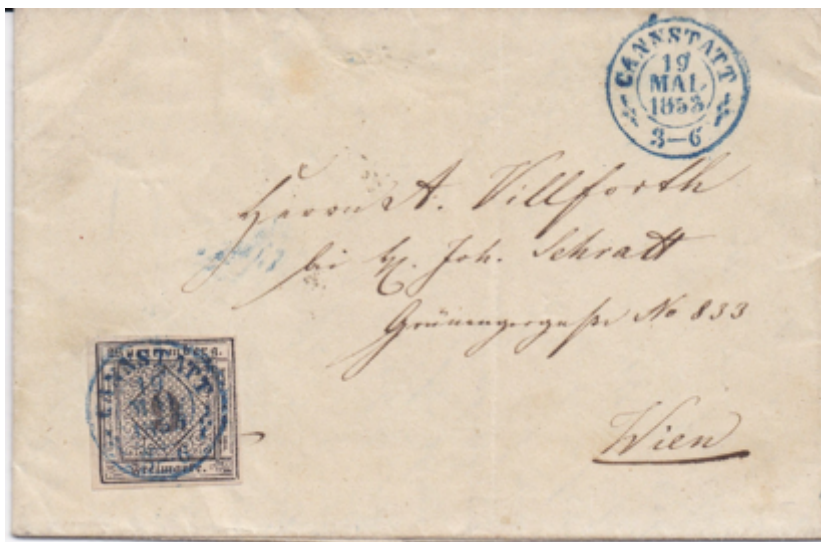 CANNSTATT
19
MAI.
1853
3–6
Herrn A. Villforth
bei H. Joh. Schratt
No 833
Wien
CANNSTATT
19
9
6
Freimarke.